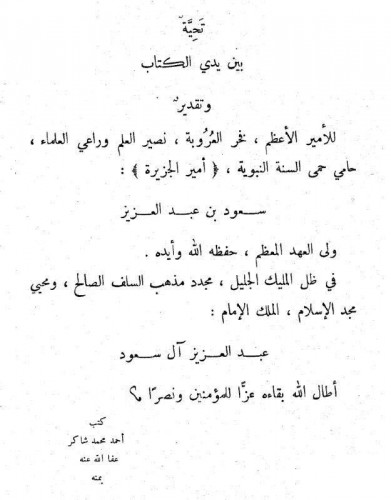 تَحِيَّةٌ
بين يدي الكتاب
وتقديرٌ
للأمير الأعظم ، فخر العُرُوبة ، نصير العلم وراعي العلماء ،
حامي حمى السنة النبوية ، ﴿ أمير الجزيرة ﴾ :
سعود بن عبد العزيز
ولى العهد المعظم ، حفظه الله وأيده .
في ظل المليك الجليل ، مجدد مذهب السلف الصالح ، ومحيي
مجد الإسلام ، الملك الإمام :
عبد العزيز آل سعود
أطال الله بقاءه عزًّا للمؤمنين ونصرًا
كتب
أحمد محمد شاكر
عفا الله عنه
بمنه